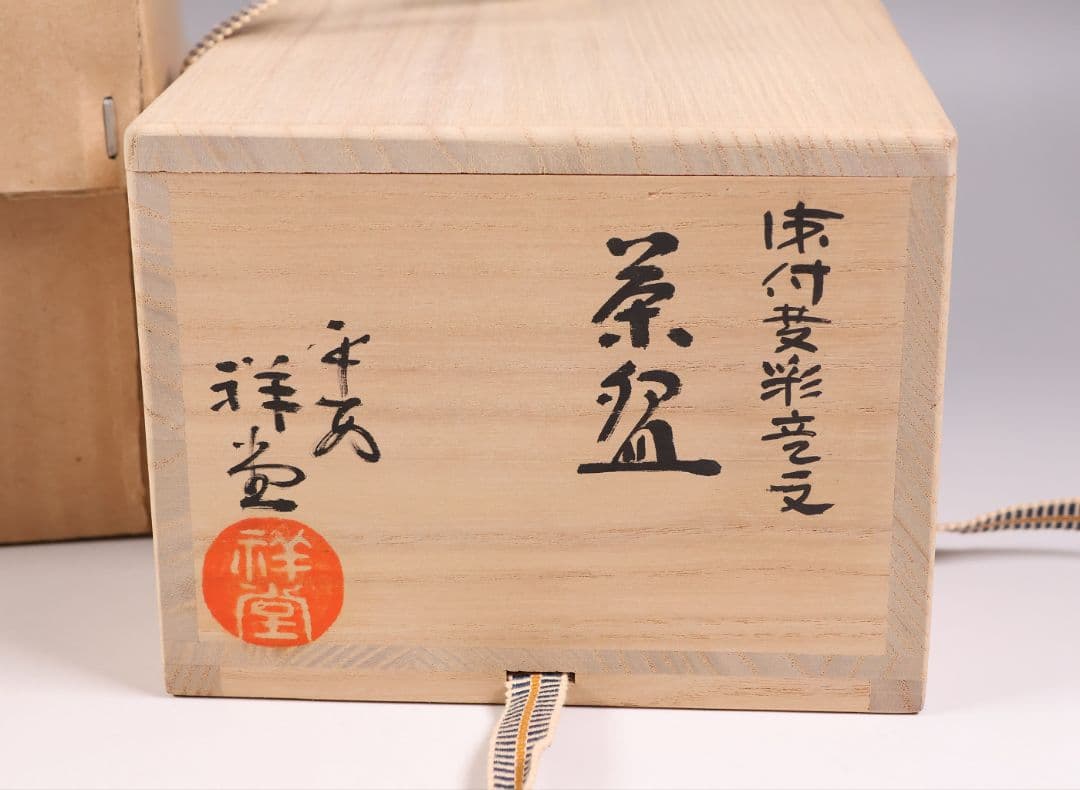 染付彩竜文
茶盌
平安
祥堂
祥堂